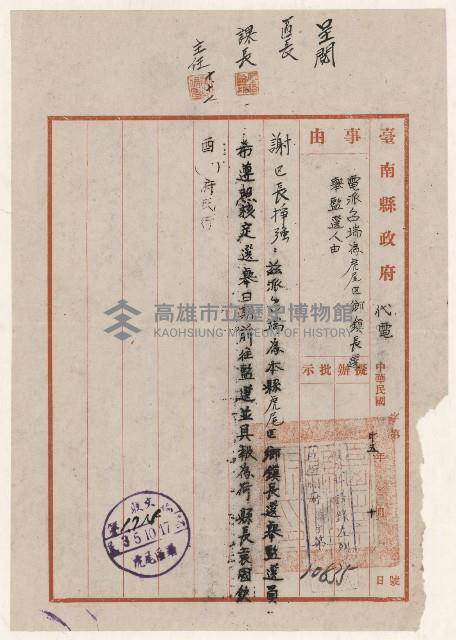 呈閱
區長
課長
主任
臺南縣政府 代電
事由
電派台端為虎尾區鄉鎮長選
舉監選人由
擬辦批示
中華民國
字第
年 月 十 日
10635 號
謝區長掙強：茲派台端為本縣虎尾區鄉鎮長選舉監選員
希遵照核定選舉日期前往監選並具報為荷 縣長袁國欽
酉( )府民行
收文
35.10.17
虎尾區署
高雄市立歷史博物館
KAOHSIUNG MUSEUM OF HISTORY